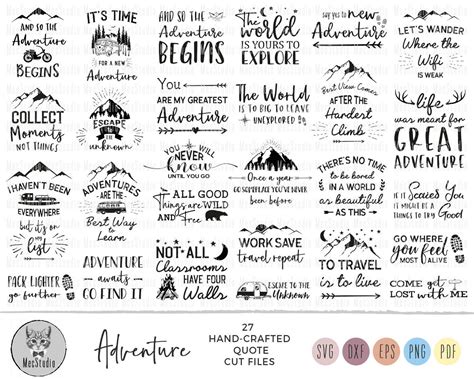 AND SO THE
Adventure
BEGINS
IT'S TIME
FOR A NEW
Adventure
AND SO THE
Adventure
BEGINS
The
world
IS YOURS TO
EXPLORE
Say yes to new
Adventure
LET'S WANDER
Where the
Wifi
IS WEAK
COLLECT
Moments
NOT THINGS
ESCAPE
to the
unknown
You
ARE MY GREATEST
Adventure
The World
IS TO BIG TO LEAVE
UNEXPLORED
Best View Comes
AFTER THE
Hardest
Climb
life
was meant for
GREAT
ADVENTURE
I HAVEN'T BEEN
EVERYWHERE
but it's on
my list
ADVENTURES
ARE THE
Best Way to
Learn
YOU NEVER
Know
UNTIL YOU GO
ALL GOOD
Things are WILD
AND Free
Once a year
GO SOMEPLACE YOU'VE NEVER
been before
THERE'S NO TIME
to be bored
IN A WORLD
as beautiful
AS THIS
If it Scares You
IT MIGHT BE A
THINGS TO Try Good
PACK LIGHTER
go further
ADVENTURE
awaits
GO FIND IT
NOT ALL
Classrooms
HAVE FOUR
Walls
WORK SAVE
travel repeat
ESCAPE TO THE
Unknown
TO TRAVEL
is to live
GO WHERE
you feel
MOST ALIVE
COME get
LOST WITH Me
MecStudio
Adventure
27
HAND-CRAFTED
QUOTE
CUT FILES
SVG
DXF
EPS
PNG
PDF